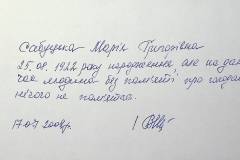 Сабуцька Марія Григорівна
25.08.1922 року народження, але на да
час людина без пам'яті, про голодом
нічого не пам'ятає.
17.07.2008р.